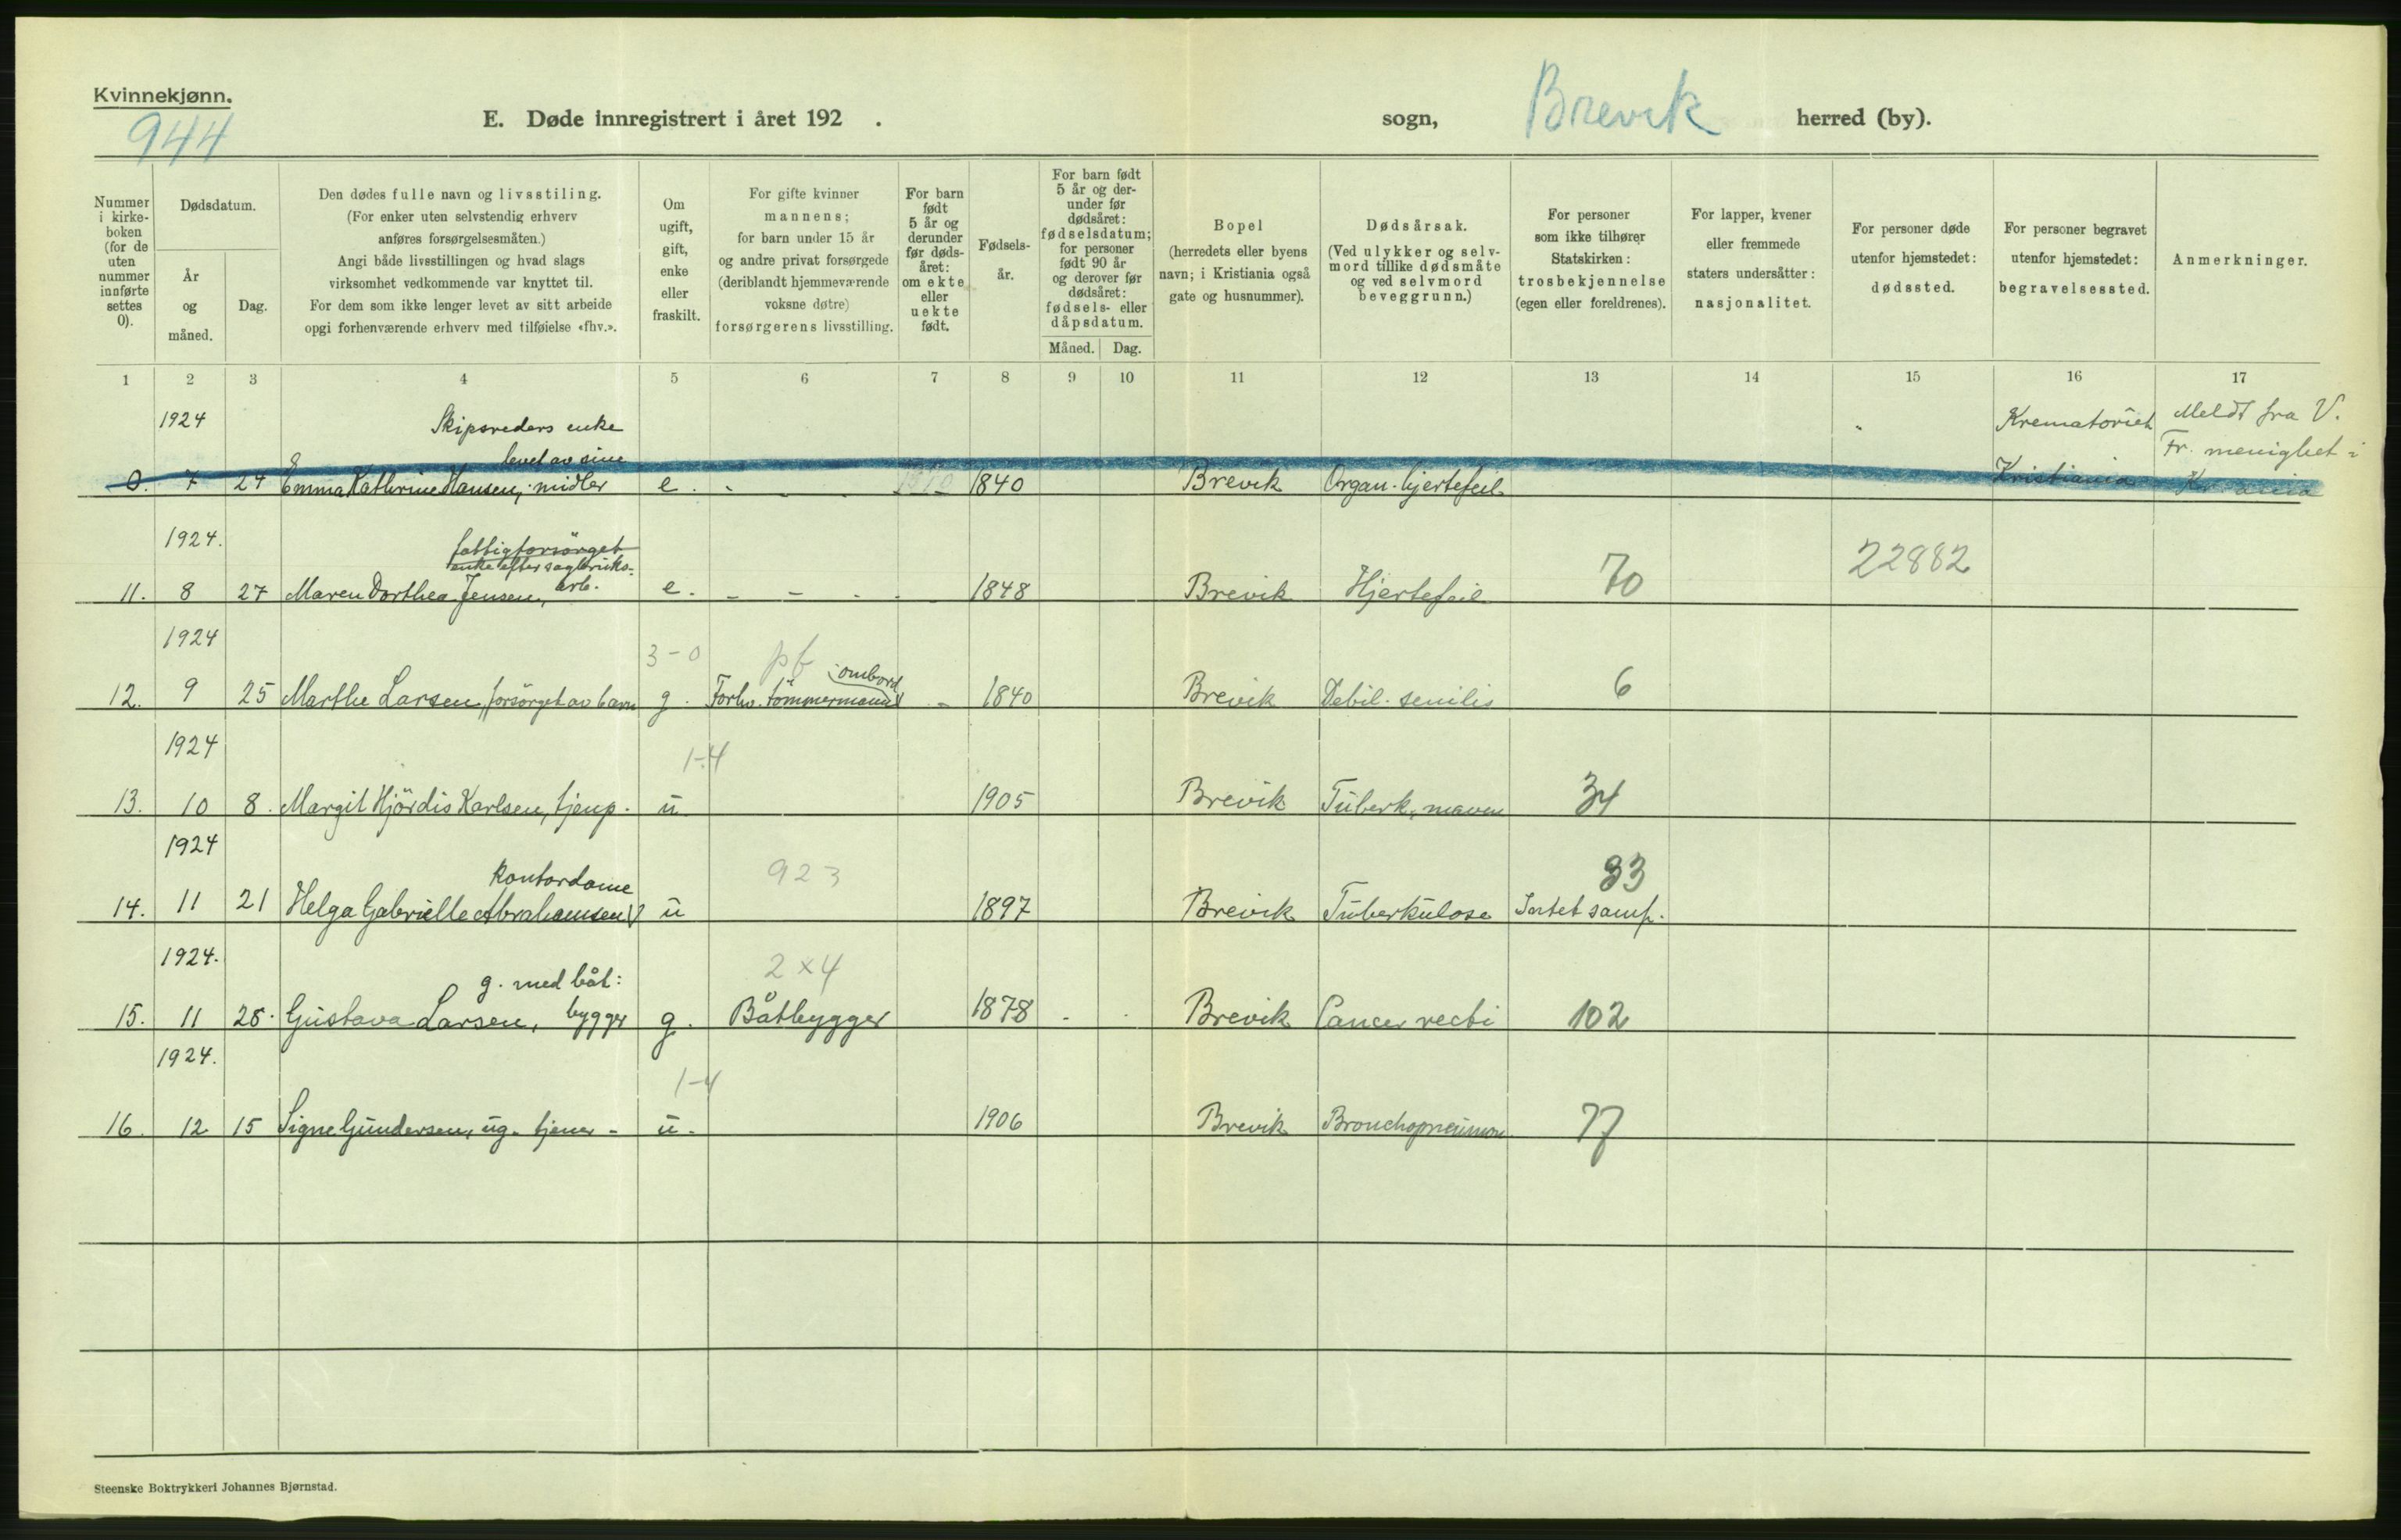 Kvinnekjønn.
944
E. Døde innregistrert i året 192 . sogn, Brevik herred (by).
Nummer i kirke- boken (for de uten nummer innførte settes 0).
Dødsdatum.
År og måned.
Dag.
Den dødes fulle navn og livsstiling.
(For enker uten selvstendig erhverv
anføres forsørgelsesmåten.)
Angi både livsstillingen og hvad slags
virksomhet vedkommende var knyttet til.
For dem som ikke lenger levet av sitt arbeide
opgi forhenværende erhverv med tilføielse «fhv.».
Om ugift, gift, enke eller fraskilt.
For gifte kvinner
mannens;
for barn under 15 år
og andre privat forsørgede
(deriblandt hjemmeværende
voksne døtre)
forsørgerens livsstilling.
For barn født 5 år og derunder før døds- året: om ekte eller uekte født.
Fødsels- år.
For barn født 5 år og der- under før dødsåret: fødselsdatum; for personer født 90 år og derover før dødsåret: fødsels- eller dåpsdatum.
Måned. Dag.
Bopel
(herredets eller byens
navn; i Kristiania også
gate og husnummer).
Dødsårsak.
(Ved ulykker og selv-
mord tillike dødsmåte
og ved selvmord
beveggrunn.)
For personer
som ikke tilhører
Statskirken:
trosbekjennelse
(egen eller foreldrenes).
For lapper, kvener
eller fremmede
staters undersåtter:
nasjonalitet.
For personer døde
utenfor hjemstedet:
dødssted.
For personer begravet
utenfor hjemstedet:
begravelsessted.
Anmerkninger.
1 2 3 4 5 6 7 8 9 10 11 12 13 14 15 16 17
1924 Skipsreders enke Krematoriet Meldt fra V.
levet av sine Fr. menighet i
0. 7 24 Emma Kathrine Hansen, midler e. 1840 Brevik Organ. hjertefeil Kristiania
1924. fattigforsörget 22882
enke efter sagbruks-
11. 8 27 Maren Dorthea Jensen, arb. e. - - - 1848 Brevik Hjertefeil 70
1924 3-0 pf ombord
12. 9 25 Marthe Larsen, forsörget av barn g. Forhv. tömmermand 1840 Brevik Debil. senilis 6
1924 1-4
13. 10 8. Margit Hjördis Karlsen, tjenp. u. 1905 Brevik Tuberk. maven 34
1924 Kontordame 923 33
14. 11 21 Helga Gabrielle Abrahamsen u 1897 Brevik Tuberkulose Intet samf.
1924. g. med båt: 2x4
15. 11 28. Gustava Larsen, bygger g. Båtbygger 1878 - Brevik Cancer recti 102
1924. 1-4
16. 12 15 Signe Gundersen, ug. tjener - u. 1906 Brevik Bronchopneumon. 77
Steenske Boktrykkeri Johannes Bjørnstad.